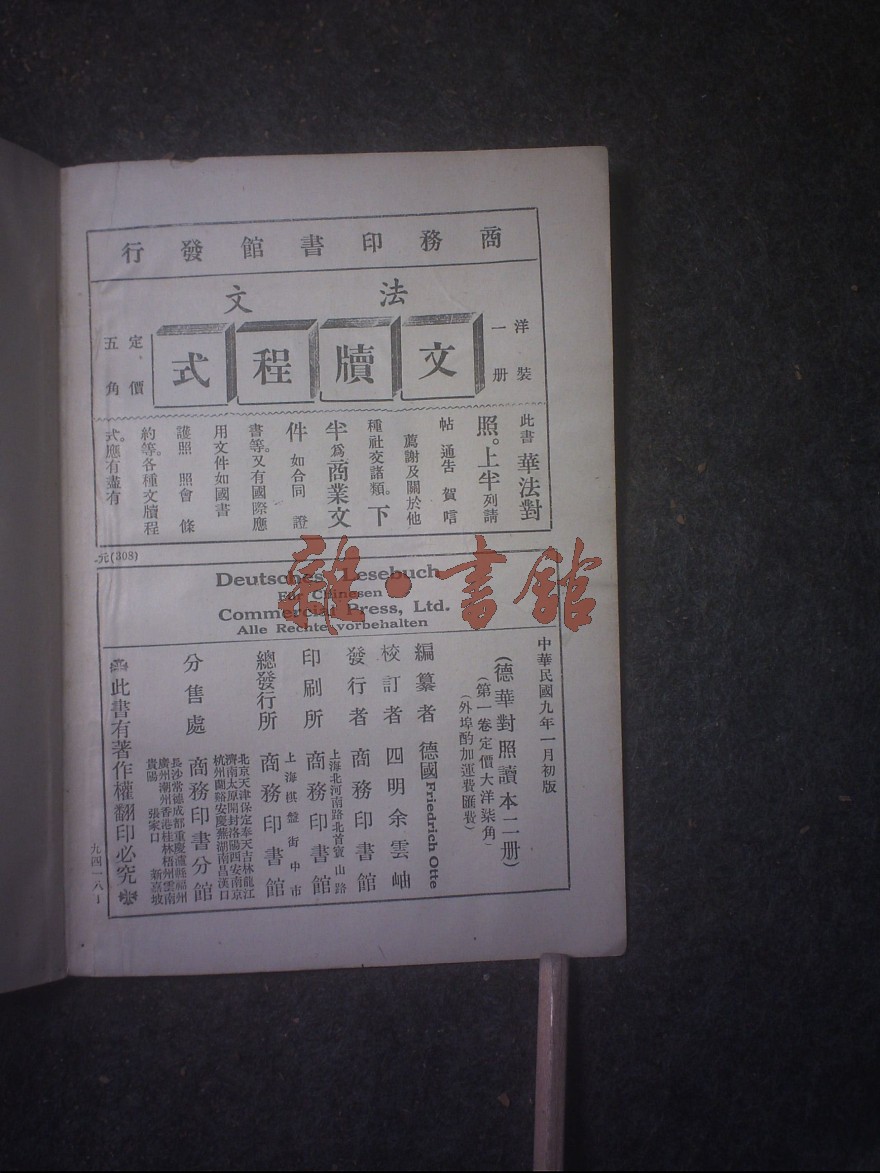 商務印書館發行
法文
文牘程式
洋裝一册
定價五角
此書華法對
照。上半列請
帖 通告 賀唁
薦謝及關於他
種社交諸類。下
半爲商業文
件 如合同 證
書等。又有國際應
用文件如國書
護照 照會 條
約等。各種文牘程
式。應有盡有
元(308)
Deutsches Lesebuch
Für Chinesen
Commercial Press, Ltd.
Alle Rechte vorbehalten
中華民國九年一月初版
(德華對照讀本二册)
(第一卷定價大洋柒角)
(外埠酌加運費匯費)
編纂者 德國Friedrich Otte
校訂者 四明余雲岫
發行者 商務印書館
上海北河南路北首寶山路
印刷所 商務印書館
上海棋盤街中市
總發行所 商務印書館
北京天津保定奉天吉林龍江
濟南太原開封洛陽西安南京
杭州蘭谿安慶蕪湖南昌漢口
分售處 商務印書分館
長沙常德成都重慶瀘縣福州
廣州潮州香港桂林梧州雲南
貴陽 張家口 新嘉坡
此書有著作權翻印必究
九四一八一
雜·書館